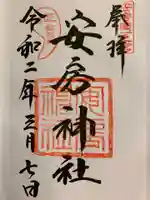 奉拝
安房神社
令和二年三月七日